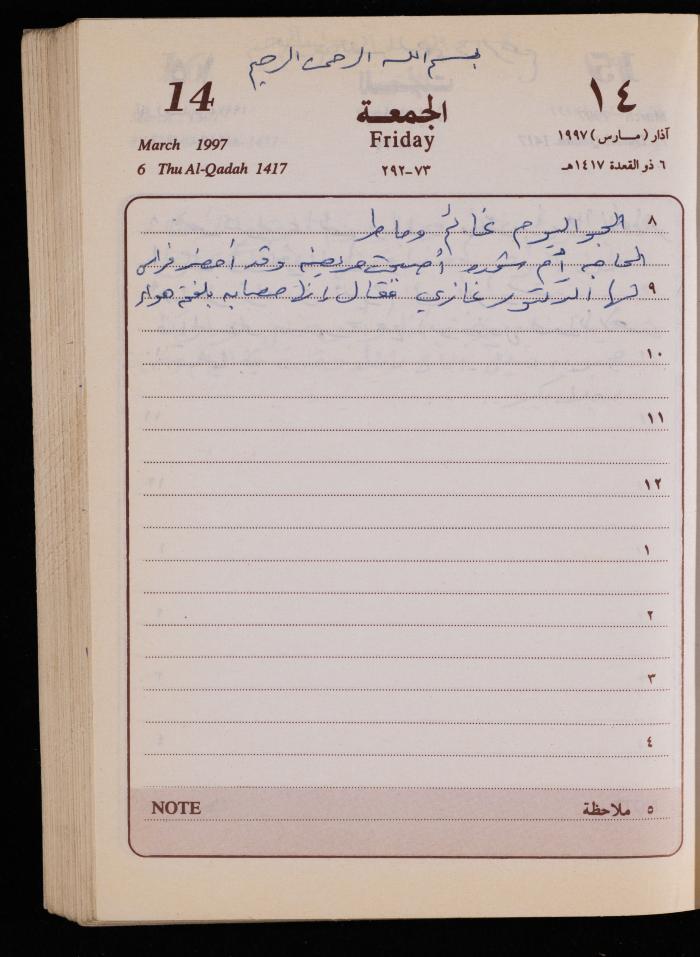 بسم الله الرحمن الرحيم
14
الجمعة
١٤
March 1997
Friday
آذار (مارس) ١٩٩٧
6 Thu Al-Qadah 1417
٧٣-٢٩٢
٦ ذو القعدة ١٤١٧هـ
٨ الجو اليوم غائم وماطر
الحاجه أم أصبحت مريضه وقد أحضر فراس
٩ لها الدكتور غازي فقال أنها مصابه بلفحة هواء
١٠
١١
١٢
١
٢
٣
٤
NOTE
٥ ملاحظة